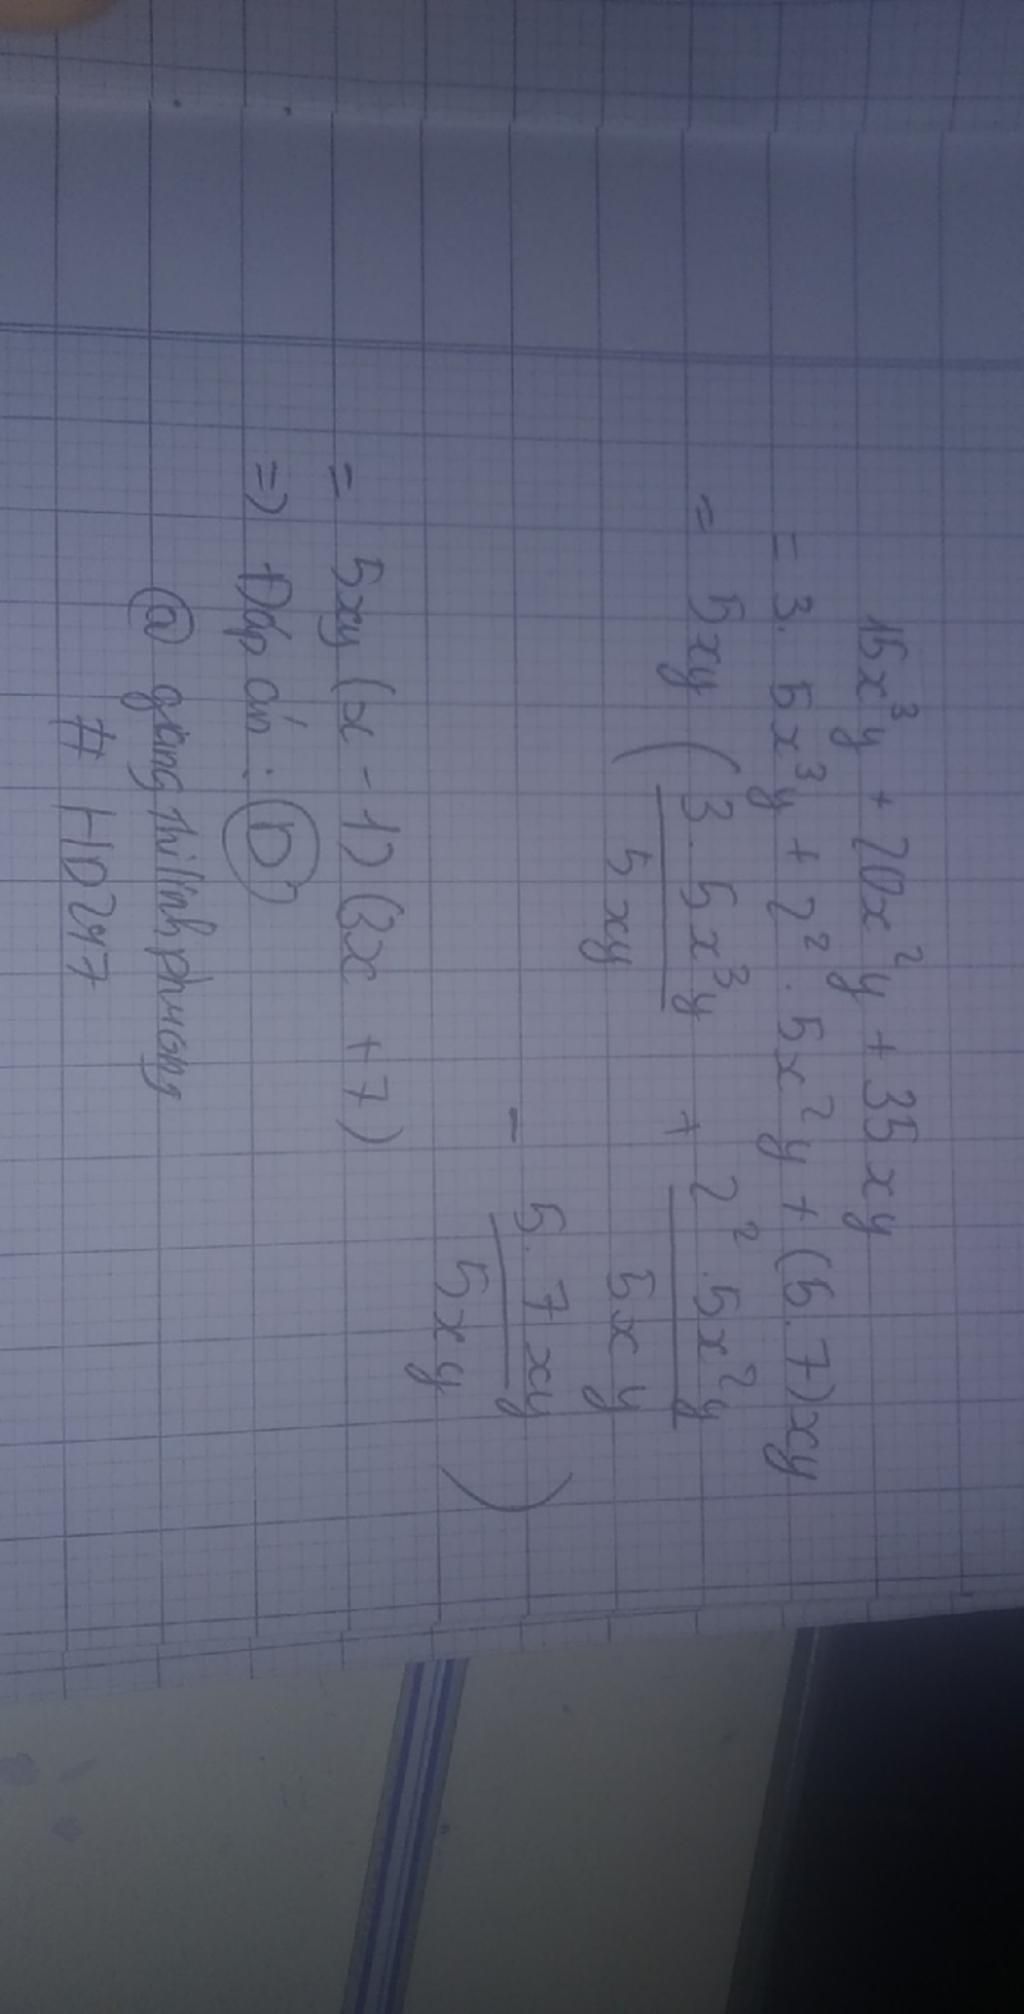 15x³y + 20x²y + 35xy
= 3.5x³y + 2².5x²y + (5.7)xy
= 5xy ( 3.5x³y / 5xy + 2².5x²y / 5xy
- 5.7xy / 5xy )
= 5xy (x - 1) (3x + 7)
=> Đáp án : D
@ giangthilinhphuong
# HD247